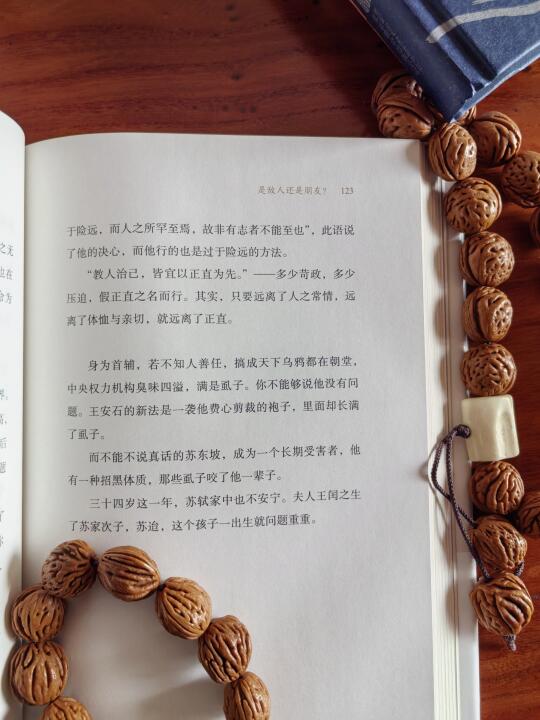 是敌人还是朋友? 123
于险远，而人之所罕至焉，故非有志者不能至也”，此语说
了他的决心，而他行的也是过于险远的方法。
“教人治己，皆宜以正直为先。”——多少苛政，多少
压迫，假正直之名而行。其实，只要远离了人之常情，远
离了体恤与亲切，就远离了正直。
身为首辅，若不知人善任，搞成天下乌鸦都在朝堂，
中央权力机构臭味四溢，满是虱子。你不能够说他没有问
题。王安石的新法是一袭他费心剪裁的袍子，里面却长满
了虱子。
而不能不说真话的苏东坡，成为一个长期受害者，他
有一种招黑体质，那些虱子咬了他一辈子。
三十四岁这一年，苏轼家中也不安宁。夫人王闰之生
了苏家次子，苏迨，这个孩子一出生就问题重重。
之无
也在
会为
高，
后
题
了